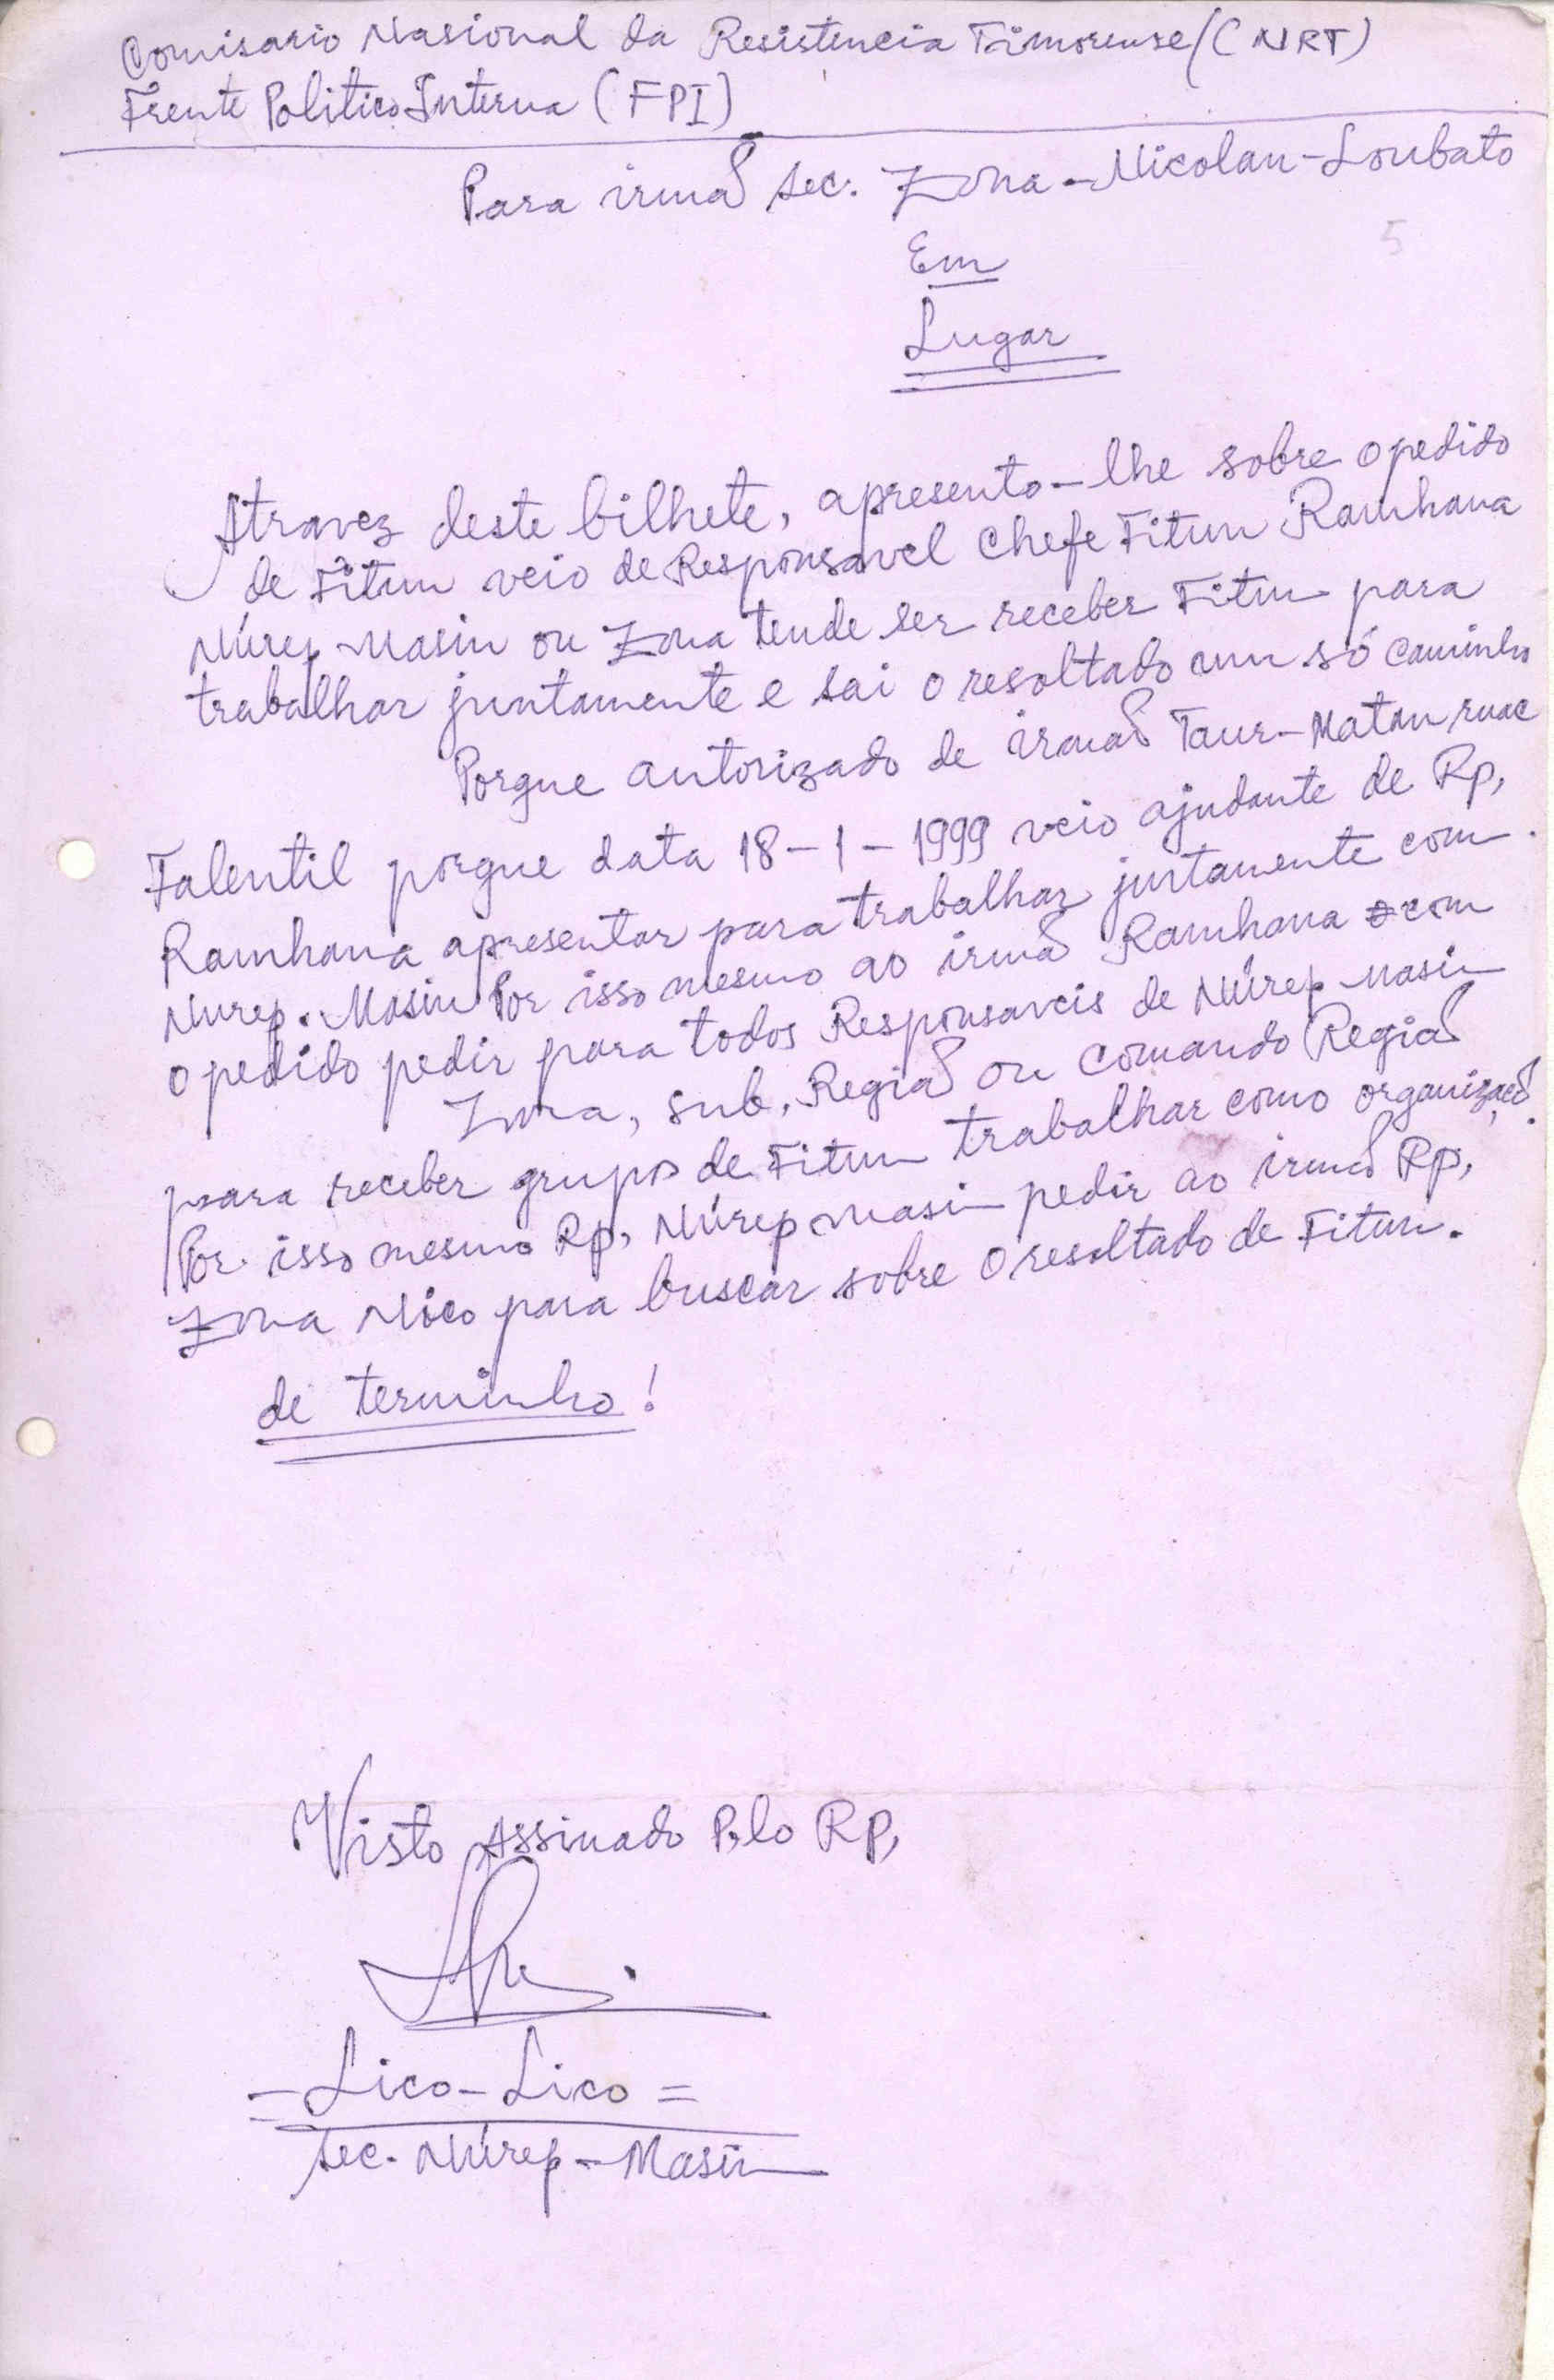 Comisario Nasional da Resistencia Timorense/(CNRT)
Frente Politico Interna (FPI)
Para irmaõ sec. Zona-Nicolau-Loubato
5
Em
Lugar
Atravez deste bilhete, apresento-lhe sobre o pedido
de Fitun veio de Responsavel Chefe Fitun Ramhana
Núrep Masin ou Zona tende ser receber Fitun para
trabalhar juntamente e sai o resoltado um só caminho
Porque autorizado de irmaõ Taur-Matan ruac
Falentil porque data 18-1-1999 veio ajudante de Rp,
Ramhana apresentar para trabalhar juntamente com
Nurep. Masin Por isso mesmo ao irmaõ Ramhana com
o pedido pedir para todos Responsaveis de Núrep Masin
Zona, sub, Regiaõ ou comando Regiaõ
para receber grupos de Fitun trabalhar como organizaçaõ.
Por isso mesmo Rp, Núrep Masin pedir ao irmaõ Rp,
Zona Nico para buscar sobre o resoltado de Fitun.
de terminho!
Visto Assinado P,lo RP,
-Lico-Lico=
sec. Núrep-Masin